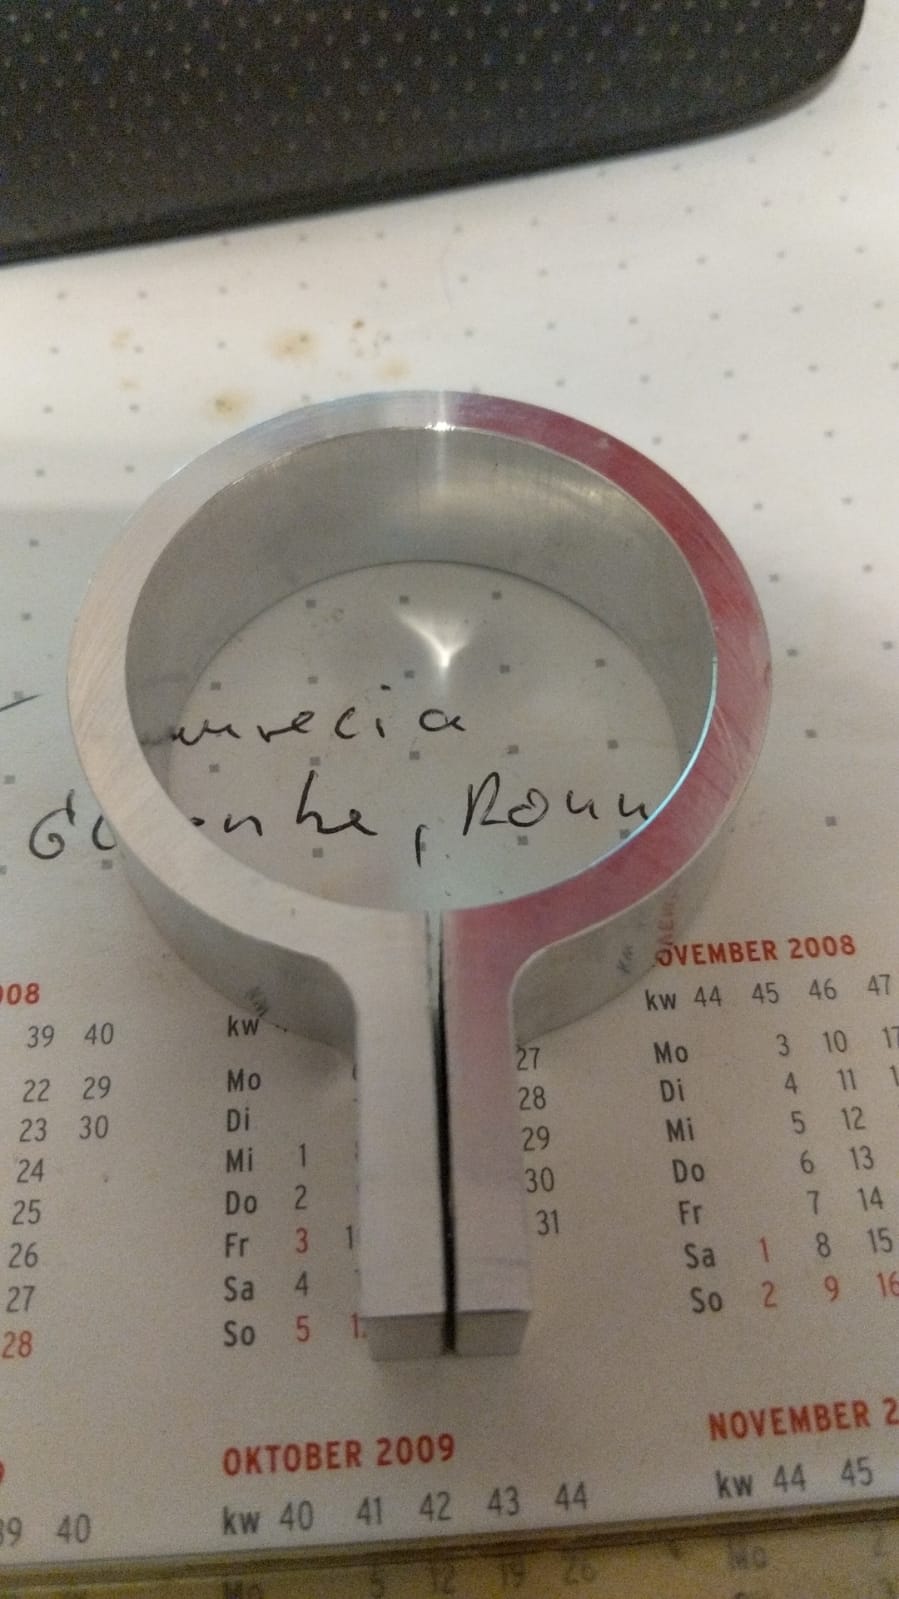 OVEMBER 2008
08
kw 44 45 46 47
39 40
kw
27
Mo 3 10 17
22 29
Mo
28
Di 4 11 1
23 30
Di
29
Mi 5 12
24
Mi 1
30
Do 6 13
25
Do 2
31
Fr 7 14
26
Fr 3 1
Sa 1 8 15
27
Sa 4
So 2 9 16
28
So 5 1
NOVEMBER 2
OKTOBER 2009
kw 44 45
39 40
kw 40 41 42 43 44
Mo 5 12 19 26
Mo 2